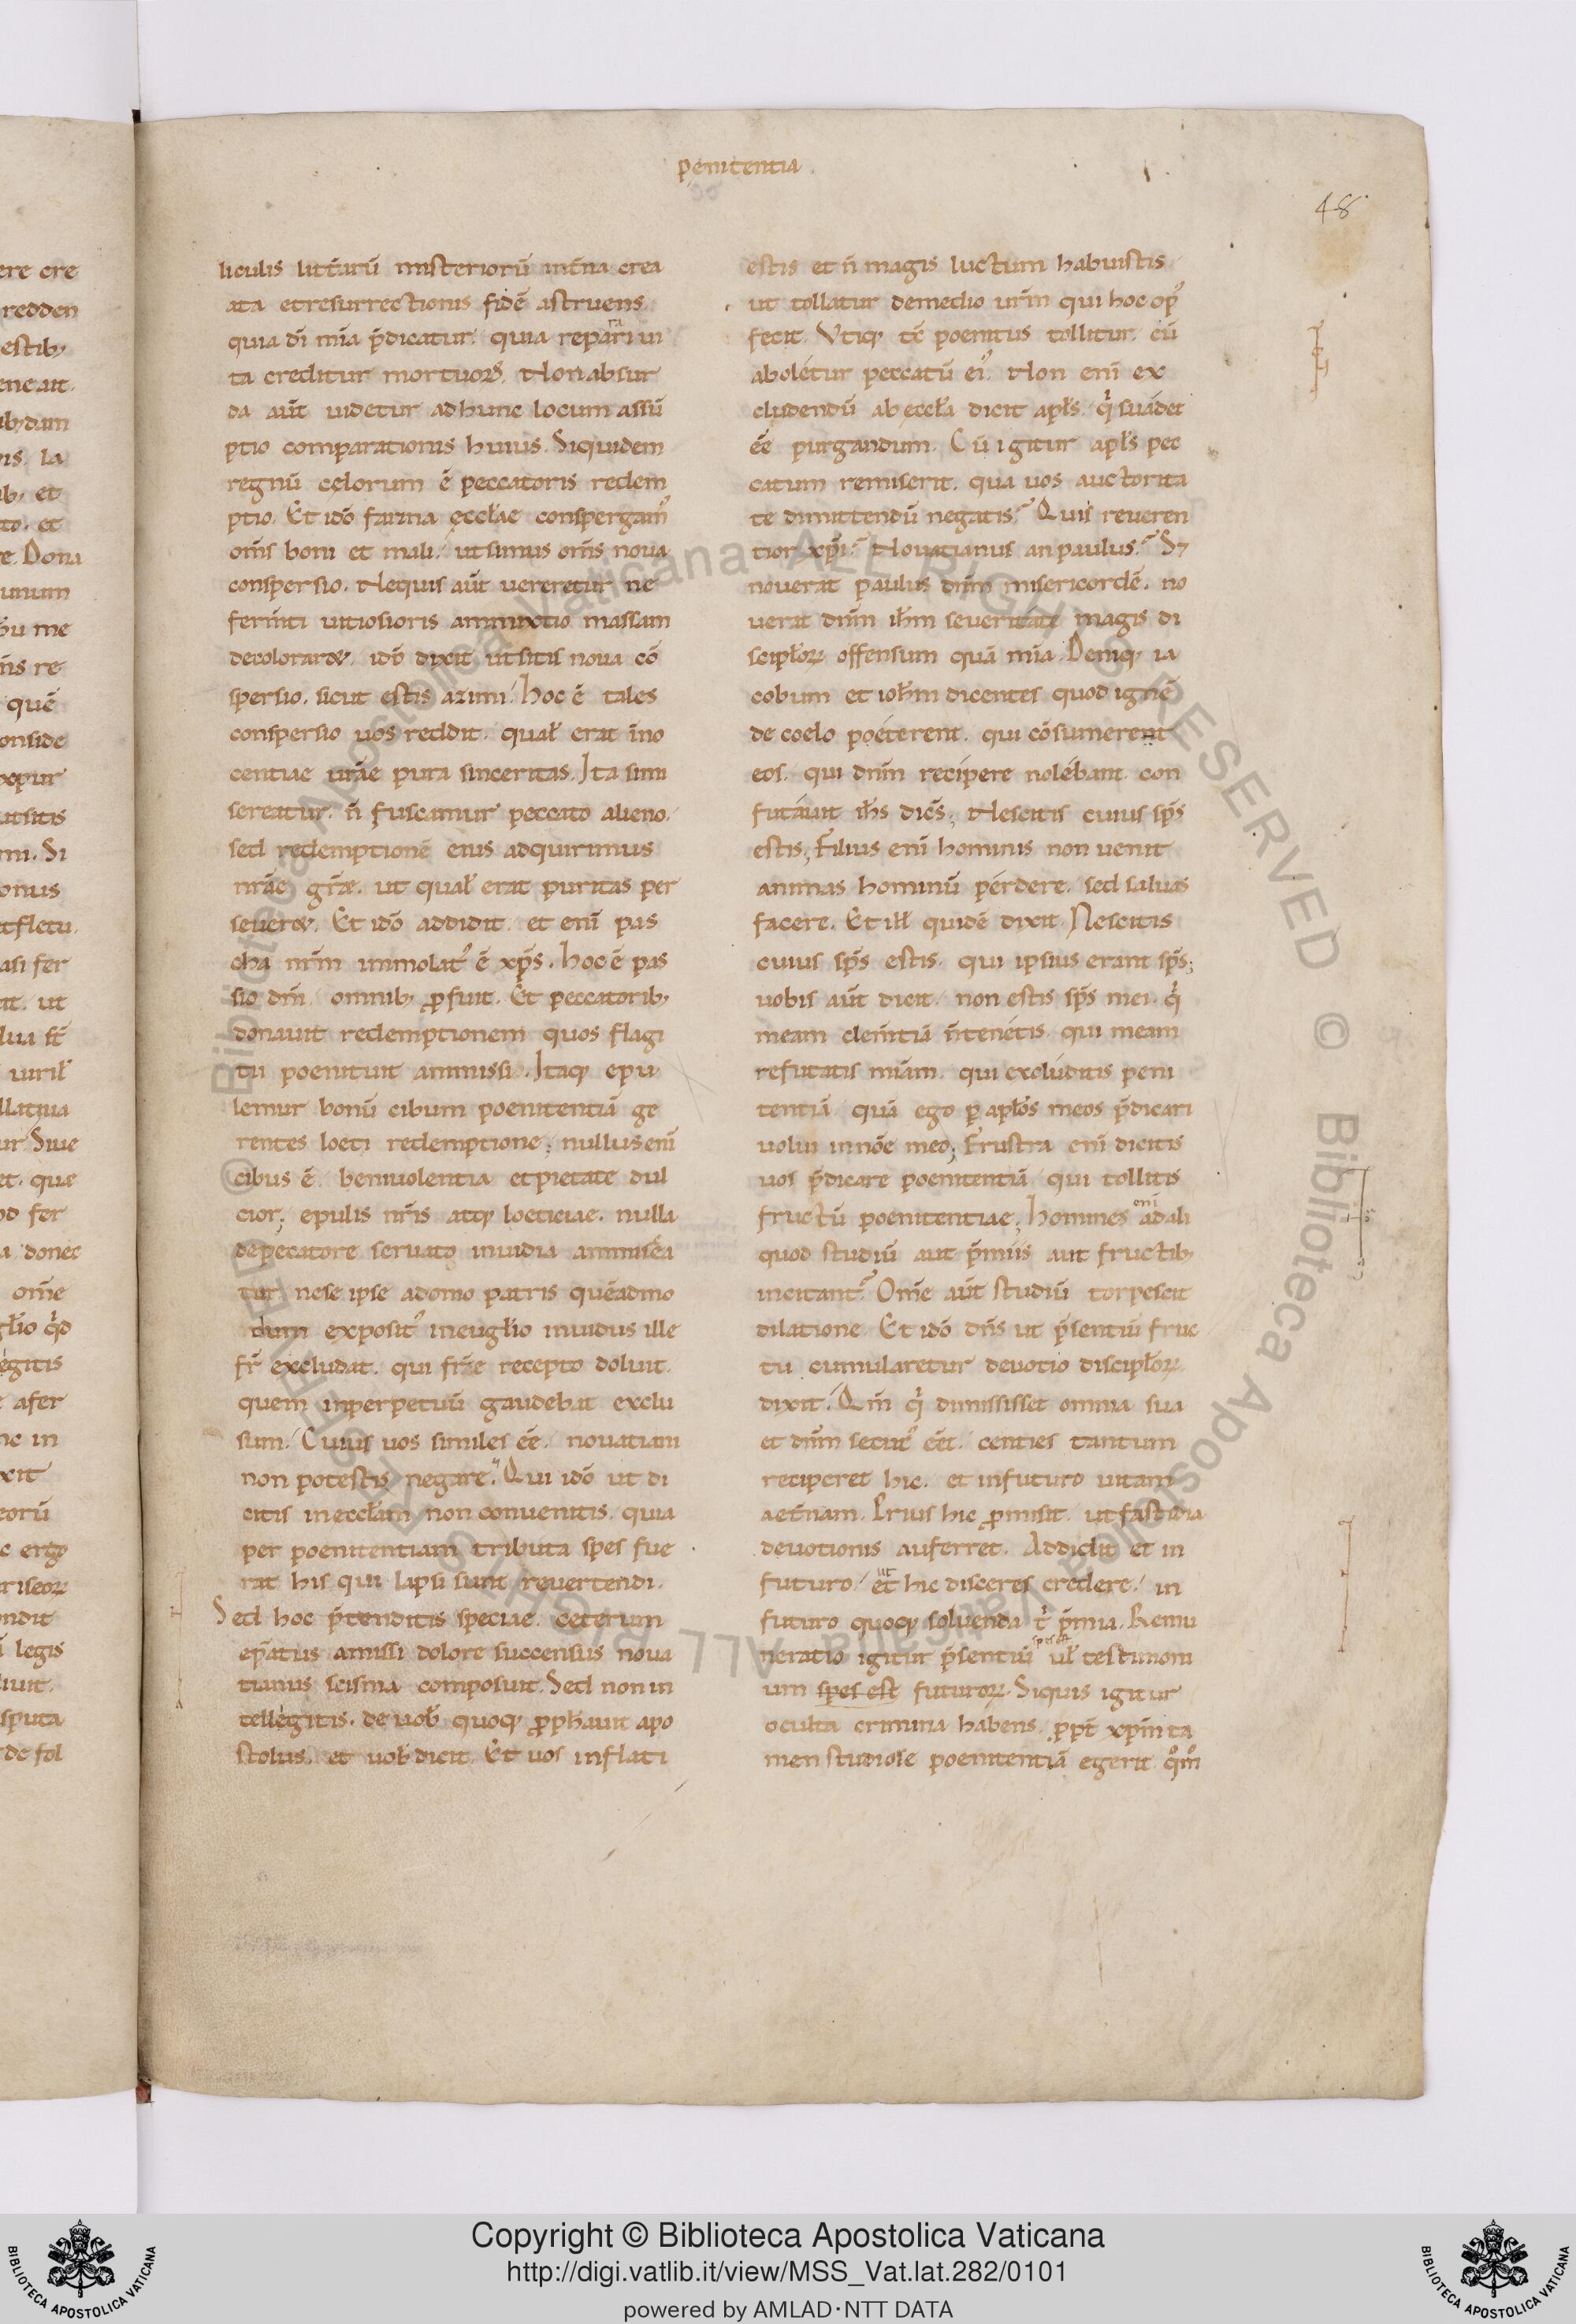 penitentia
48
liculis litt̄arū misteriorū int̄na crea
ata et resurrectionis fidē astruens.
quia dī mīa p̄dicatur. quia reparari ui
ta creditur mortuor̄. Non absur
da aūt uidetur ad hunc locum assū
ptio comparationis huius. Siquidem
regnū cęlorum ē peccatoris redem
ptio. Et idō farina ęccłae conspergam᾽
om̄s boni et mali. ut simus om̄s noua
conspersio. Nequis aūt uereretur ne
ferm̄ti uitiosioris ammixtio massam
decoloraret, idō dixit ut sitis noua cō
spersio. sicut estis azimi. hoc ē tales
conspersio uos reddit. qual̄ erat īno
centiae ur̄ae pura sinceritas. Ita si mi
sereatur. n̄ fuscamur peccato alieno.
sed redemptionē eius adquirimus
nr̄ae gr̄ae. ut qual̄ erat puritas per
seueret. Et idō addidit. et enī pas
cha nr̄m immolat᾽ ē xp̄s. hoc ē pas
sio dn̄i omnib; ꝓfuit. Et peccatorib;
donauit redemptionem quos flagi
tii poenituit ammissi. Itaq; epu
lemur bonū cibum poenitentiā ge
rentes loeti redemptione; nullus enī
cibus ē beniuolentia et pietate dul
cior; epulis nr̄is atq; loeticiae. nulla
de peccatore seruato inuidia ammiscea
tur. ne se ipse a domo patris quēadmo
dum exposit᾽ in eugl̄io inuidus ille
fr̄ excludat. qui fr̄e recepto doluit.
quem in perpetuū gaudebat exclu
sum. Cuius uos similes eē. nouatiani
non potestis negare. Qui idō ut di
citis in eccłam non conuenitis. quia
per poenitentiam tributa spes fue
rat his qui lapsi sunt reuertendi.
Sed hoc p̄tenditis speciae. ceterum
ep̄atus amissi dolore succensus noua
tianus scisma composuit. Sed non in
tellegitis. de uob̄ quoq; ꝓph̄auit apo
stolus. et uob̄ dicit. Et uos inflati
estis et n̄ magis luctum habuistis
ut tollatur de medio ur̄m qui hoc op᾽
fecit. Vtiq; tc̄ poenitus tollitur. cū
aboletur peccatū ei᾽. Non enī ex
cludendū ab ęccła dicit apl̄s. q̇ suadet
eē purgandum. Cū igitur apl̄s pec
catum remiserit. qua uos auctorita
te dimittendū negatis? Quis reueren
tior xp̄i? Nouatianus an paulus? S;
nouerat paulus dn̄m misericordē. no
uerat dn̄m ih̄m seueritate magis di
scipl̄oꝝ offensum quā mīa. Deniq; ia
cobum et ioh̄m dicentes quod ignē
de coelo poeterent. qui cōsumerent
eos. qui dn̄m recipere nolebant. con
futauit ih̄s dicēs; Nescitis cuius sp̄s
estis; Filius enī hominis non uenit
animas hominū perdere. sed saluas
facere. Et ill̄ quidē dixit. Nescitis
cuius sp̄s estis. qui ipsius erant sp̄s;
uobis aūt dicit. non estis sp̄s mei. q̇
meam clem̄tiā n̄ tenetis. qui meam
refutatis mīam. qui excluditis peni
tentiā quā ego p̱ apl̄os meos p̄dicari
uolui in nōe meo; Frustra enī dicitis
uos p̄dicare poenitentiā qui tollitis
fructū poenitentiae; Homines enī ad ali
quod studiū aut p̄miis aut fructib;
incitant᾽. Om̄e aūt studiū torpescit
dilatione. Et idō dn̄s ut p̄sentiū fruc
tu cumularetur deuotio discipl̄oꝝ
dixit. Qm̄ q̇ dimississet omnia sua
et dn̄m secut᾽ eēt. centies tantum
reciperet hic. et in futuro uitam
aet̄nam. Prius hic ꝓmisit. ut fastidia
deuotionis auferret. Addidit et in
futuro. ut et hic disceres credere. in
futuro quoq; soluenda t᾽ p̄mia. Remu
neratio igitur p̄sentiū spes est ul̄ testimoni
um spes est futuroꝝ. Siquis igitur
oculta crimina habens. ꝓpt̄ xp̄m ta
men studiose poenitentiā egerit. qm̊
Copyright © Biblioteca Apostolica Vaticana
http://digi.vatlib.it/view/MSS_Vat.lat.282/0101
powered by AMLAD·NTT DATA